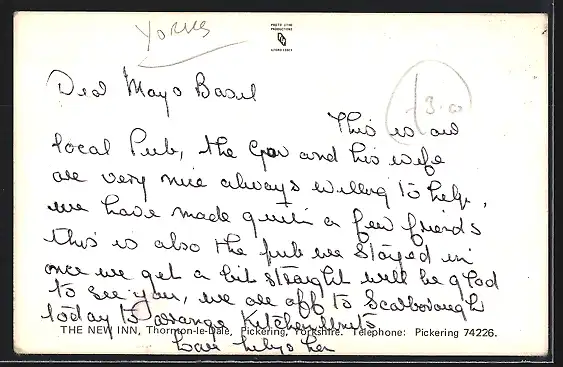 YORKS
PRETTY LYNE
PRODUCTIONS
£3.00
Dear May & Basil
This is our
local Pub, the Guv and his wife
are very nice always willing to help,
we have made quite a few friends
this is also the pub we stayed in
once we get a bit straight will be glad
to see you, we are off to Scarborough
today to arrange Kitchen Units
THE NEW INN, Thornton-le-Dale, Pickering, Yorkshire. Telephone: Pickering 74226.